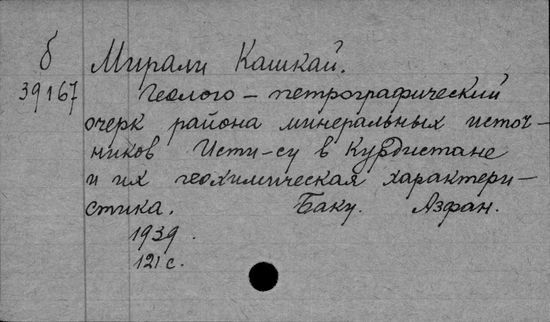 б Мирали Кашкай.
39167 Геолого – петрографический
очерк района минеральных источ-
ников Исти-су в Курдистане
и их геохимическая характери-
стика. Баку. Азфан.
1939.
121 с.